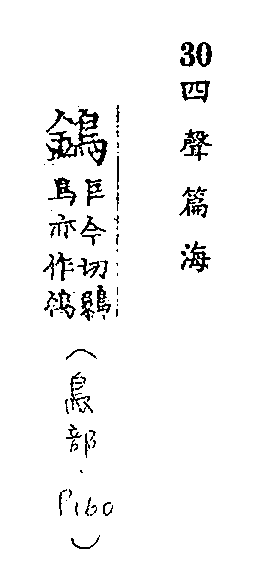 30 四聲篇海
巨今切
鳥亦作鳹
(鳥部·P160)